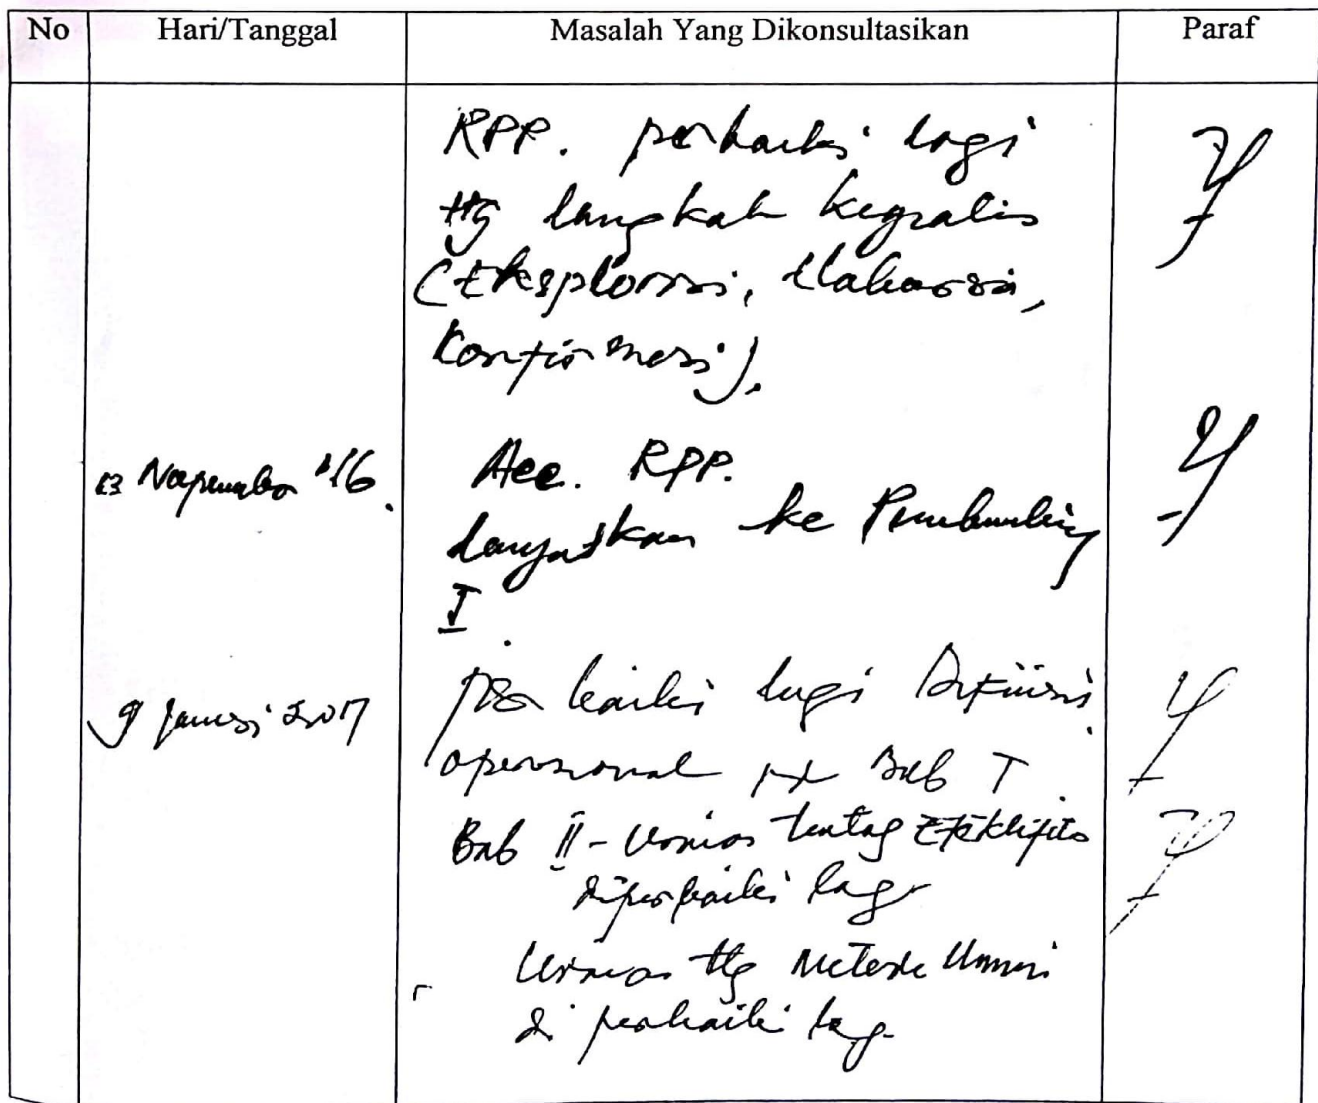 No Hari/Tanggal Masalah Yang Dikonsultasikan Paraf
RPP. perbaiki lagi
ttg langkah kegiatan
(Eksplorasi, Elaborasi,
Konfirmasi).
23 Nopember '16. Acc. RPP.
lanjutkan ke Pembimbing
I.
9 Januari 2017 perbaiki lagi Definisi
operasional pd Bab I.
Bab II - Uraian tentang Efektifitas
diperbaiki lagi
Uraian ttg Metode Ummi
di perbaiki lagi